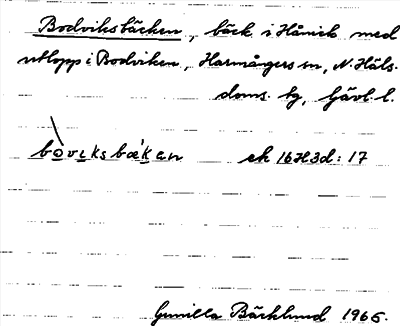 Bodviksbäcken, bäck i Hånick med
utlopp i Bodviken, Harmångers sn, N. Häls.
doms. tg, Gävl. l.
bòviksbæ̀kan ek 16H3d:17
Gunilla Bäcklund 1966.